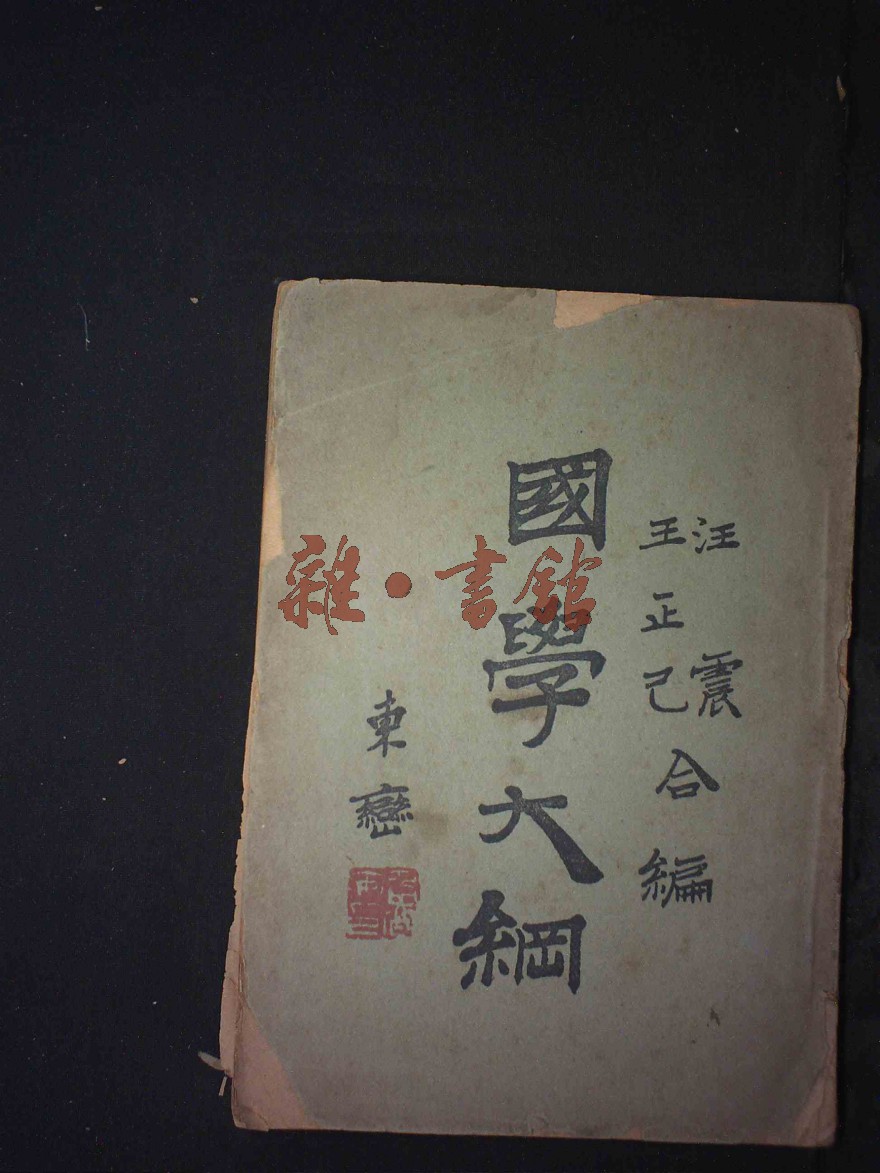 汪震
王正己
合編
國學大綱
東巒
雜·書館